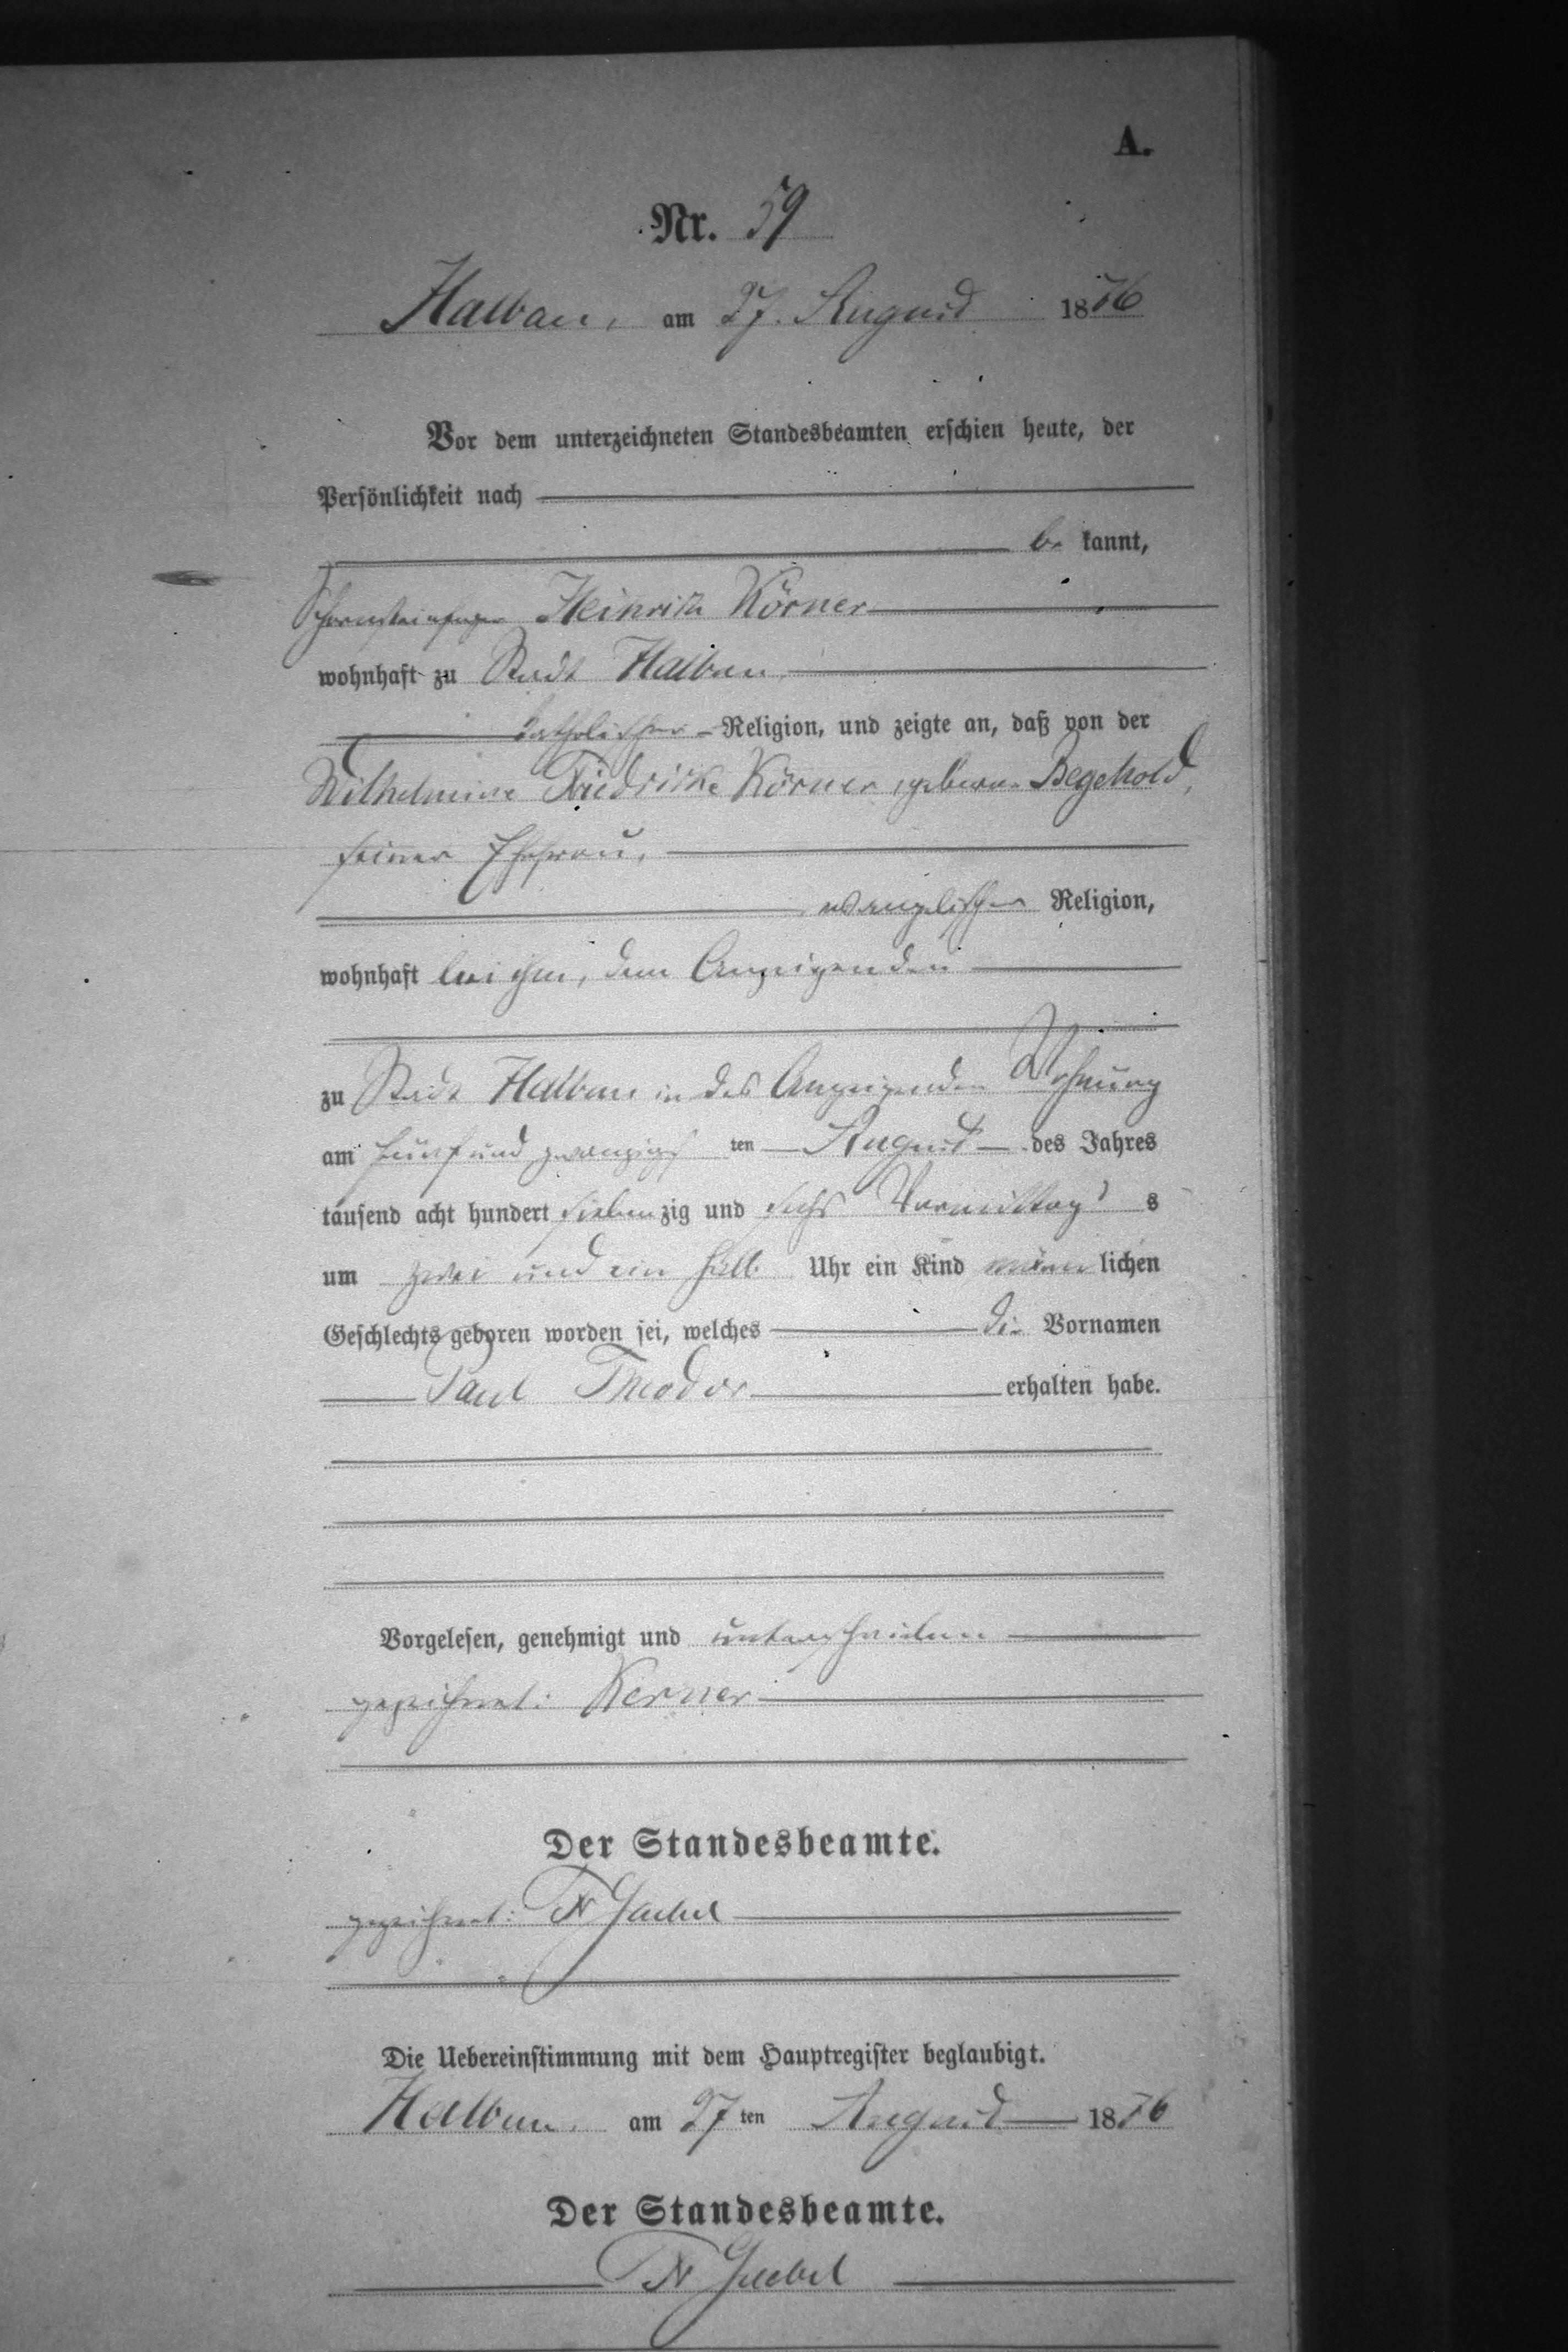 A.
Nr. 59
Halbau, am 27. August 1876
Vor dem unterzeichneten Standesbeamten erschien heute, der
Persönlichkeit nach
be kannt,
Schornsteinfeger Heinrich Körner
wohnhaft zu Stadt Halbau
katholischer Religion, und zeigte an, daß von der
Wilhelmine Friedricke Körner, geborne Begehold,
seiner Ehefrau,
evangelischer Religion,
wohnhaft bei ihm, dem Anzeigenden
zu Stadt Halbau in des Anzeigenden Wohnung
am fünf und zwanzigs ten August des Jahres
tausend acht hundert sieben zig und sechs Vormittag s
um zwei und ein halb Uhr ein Kind männ lichen
Geschlechts geboren worden sei, welches die Vornamen
Paul Theodor erhalten habe.
Vorgelesen, genehmigt und unterschrieben
gezeichnet: Kerner
Der Standesbeamte.
gezeichnet:
Die Uebereinstimmung mit dem Hauptregister beglaubigt.
Halbau, am 27 ten August 1876
Der Standesbeamte.